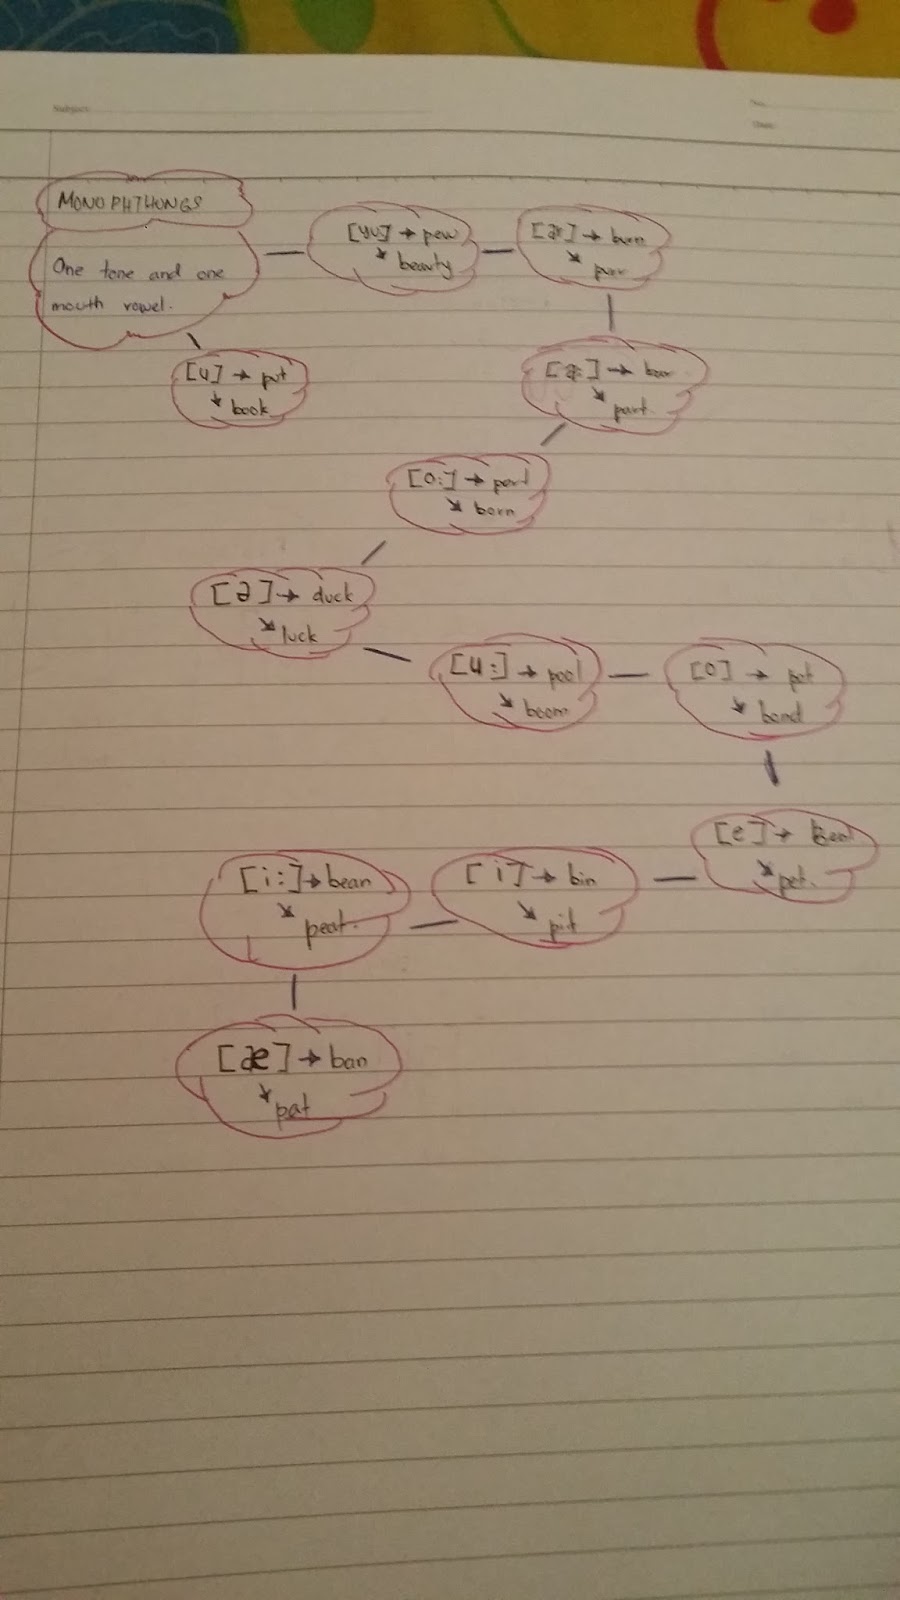 Subject:
No.
Date:
MONOPHTHONGS
One tone and one
mouth vowel.
[yu] → pew
↘ beauty
→ burn
↘ purr
[u] → put
↘ book
→ bar
↘ part.
[o:] →
↘ born
[ə] → duck
↘ luck
[u:] → pool
↘ boom
[o] → pot
↘ bond
[e] →
↘ pet.
[i] → bin
↘ pit
[i:] → bean
↘ peat.
[æ] → ban
↘ pat